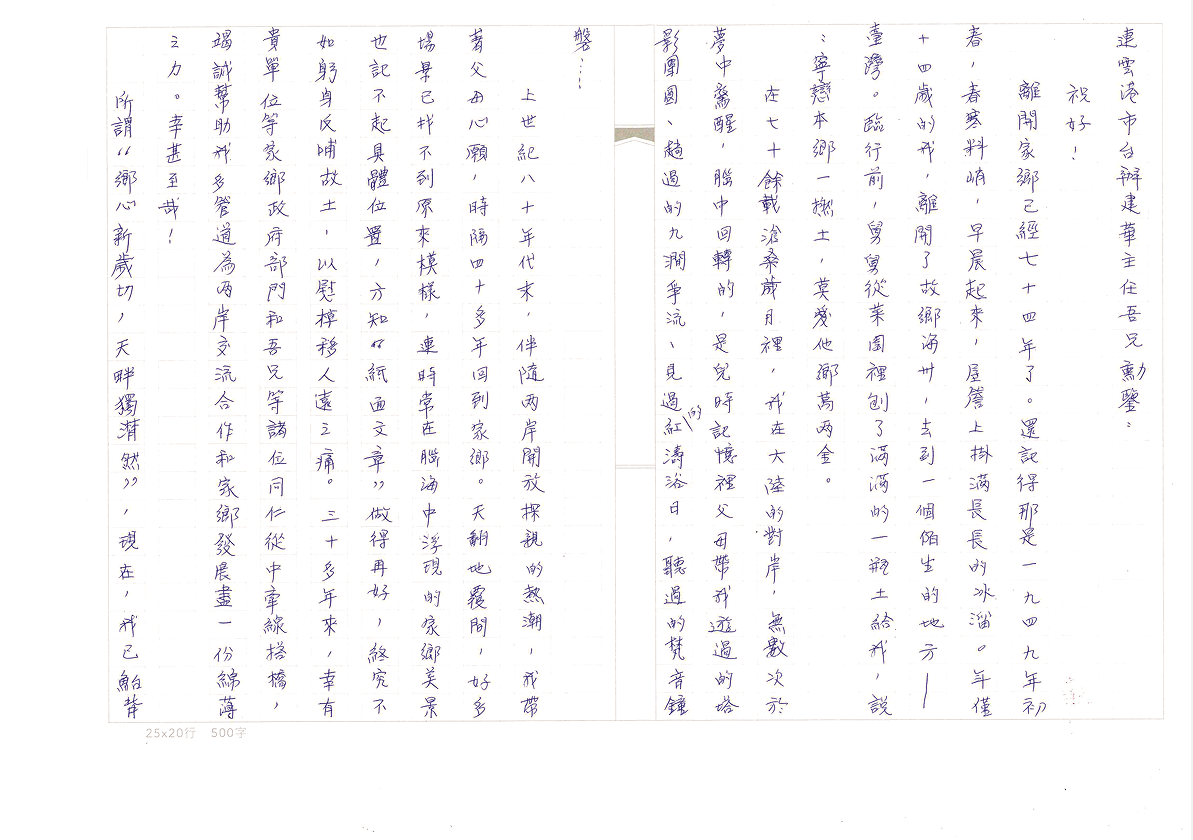 連雲港市台辦建華主任吾兄勳鑒：
祝好！
離開家鄉已經七十四年了。還記得那是一九四九年初
春，春寒料峭，早晨起來，屋簷上掛滿長長的冰溜。年僅
十四歲的我，離開了故鄉海州，去到一個陌生的地方—
臺灣。臨行前，舅舅從菜園裡刨了滿滿的一瓶土給我，說
：寧戀本鄉一撚土，莫愛他鄉萬兩金。
在七十餘載滄桑歲月裡，我在大陸的對岸，無數次於
夢中驚醒，腦中回轉的，是兒時記憶裡父母帶我遊過的塔
影團圓、趟過的九澗爭流、見過的紅濤浴日，聽過的梵音鐘
磐……
上世紀八十年代末，伴隨兩岸開放探親的熱潮，我帶
著父母心願，時隔四十多年回到家鄉。天翻地覆間，好多
場景已找不到原來模樣，連時常在腦海中浮現的家鄉美景
也記不起具體位置，方知“紙面文章”做得再好，終究不
如躬身反哺故土，以慰梓移人遠之痛。三十多年來，幸有
貴單位等家鄉政府部門和吾兄等諸位同仁從中牽線搭橋，
竭誠幫助我多管道為兩岸交流合作和家鄉發展盡一份綿薄
之力。幸甚至哉！
所謂“鄉心新歲切，天畔獨潸然”，現在，我已鮐背
25x20行 500字